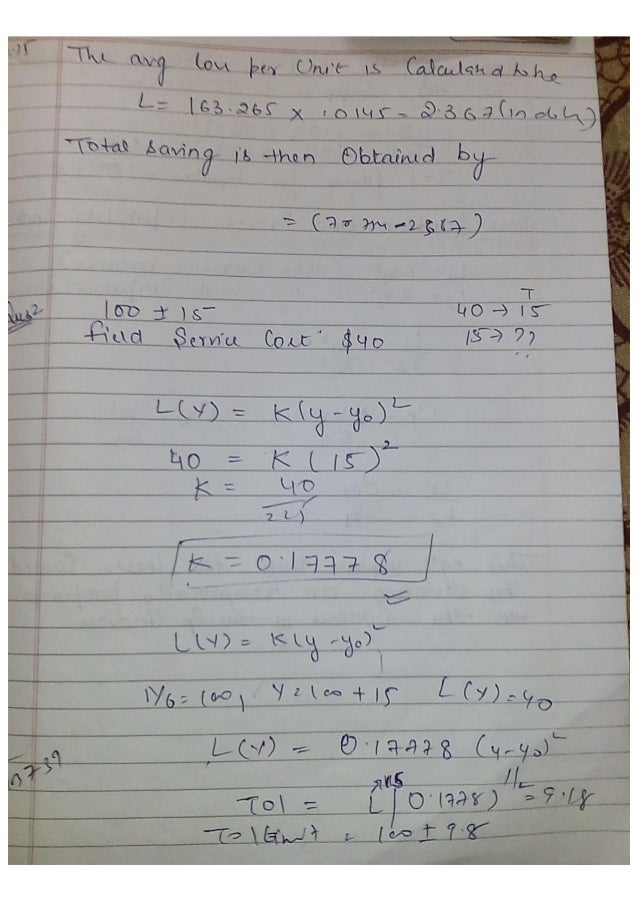 The avg loss per Unit is Calculated to be
L = 163.265 × .0145 = 2.367 (in
Total Saving is then Obtained by
= (
100 ± 15
Field Service Cost $40
T
40 → 15
15 → ??
L(Y) = K(y-y₀)²
40 = K (15)²
K = 40
225
K = 0.17778
L(Y) = K(y-y₀)²
Y₀ = 100, Y = 100 + 15 L(Y) = 40
L(Y) = 0.17778 (y-y₀)²
Tol = 0.1778)^1/2 = 9.18
= 100 ± 9.8